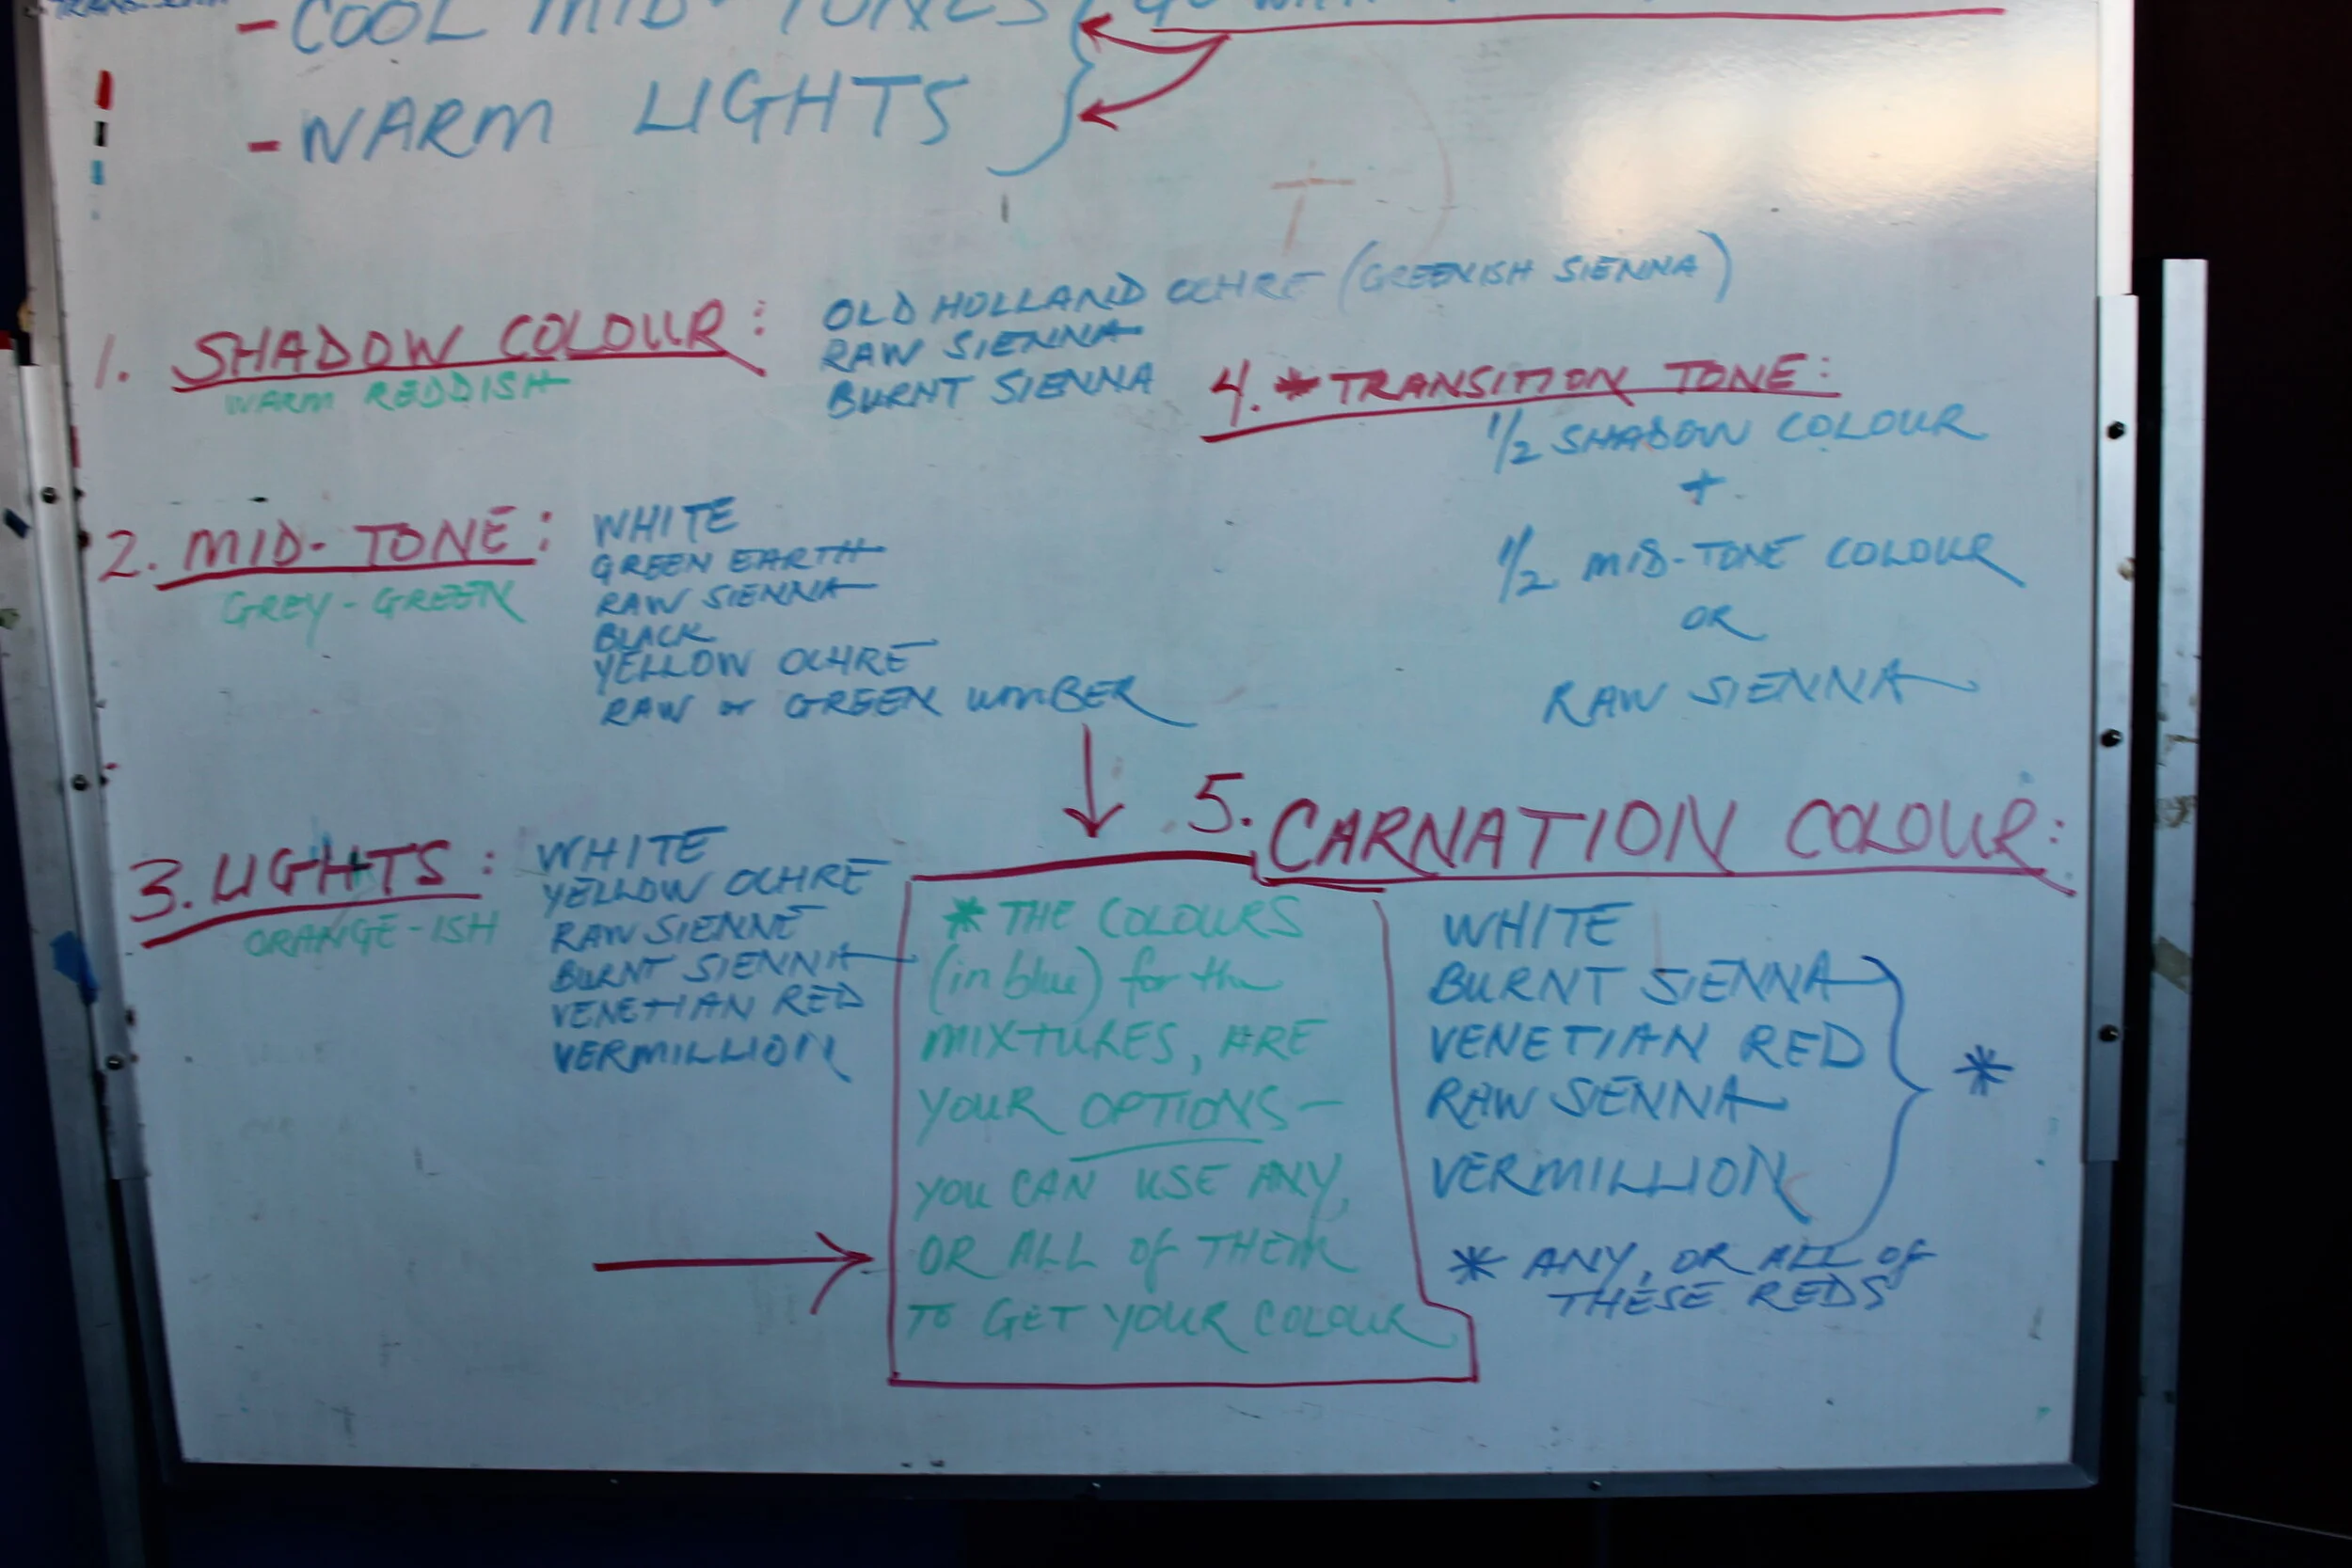 - COOL MID-TONES
- WARM LIGHTS
1. SHADOW COLOUR:
WARM REDDISH
OLD HOLLAND OCHRE (GREENISH SIENNA)
RAW SIENNA
BURNT SIENNA
2. MID-TONE:
GREY-GREEN
WHITE
GREEN EARTH
RAW SIENNA
BLACK
YELLOW OCHRE
RAW or GREEN UMBER
3. LIGHTS:
ORANGE-ISH
WHITE
YELLOW OCHRE
RAW SIENNE
BURNT SIENNA
VENETIAN RED
VERMILLION
4. * TRANSITION TONE:
1/2 SHADOW COLOUR
+
1/2 MID-TONE COLOUR
OR
RAW SIENNA
* THE COLOURS
(in blue) for the
MIXTURES, ARE
YOUR OPTIONS —
YOU CAN USE ANY,
OR ALL OF THEM
TO GET YOUR COLOUR
5. CARNATION COLOUR:
WHITE
BURNT SIENNA
VENETIAN RED
RAW SIENNA
VERMILLION
*
* ANY, OR ALL OF
THESE REDS